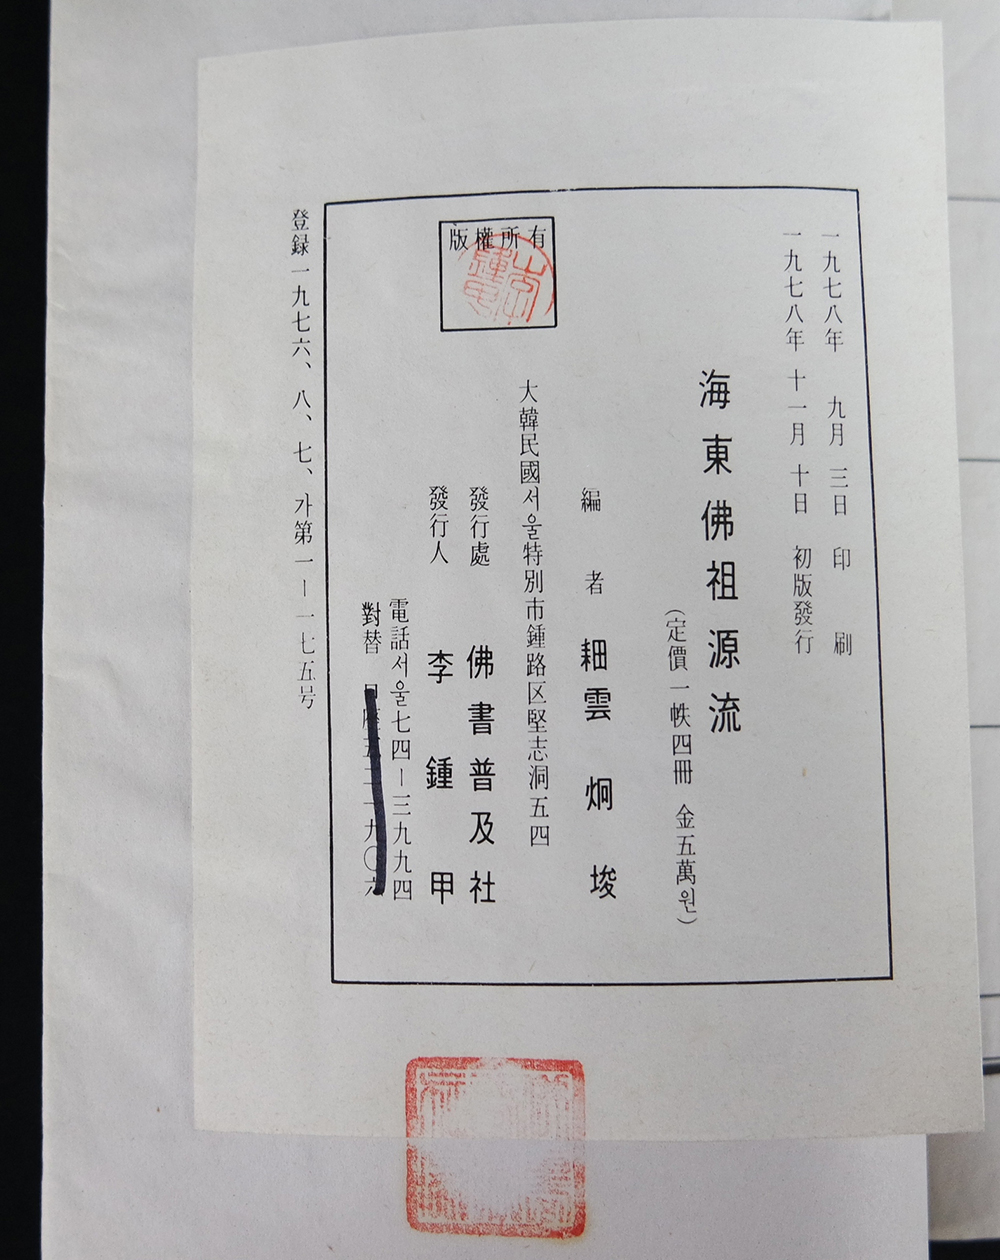 一九七八年 九月 三日 印 刷
一九七八年 十一月 十日 初版發行
海東佛祖源流
(定價 一帙四冊 金五萬원)
編 者 耘雲 炯 埈
大韓民國서울特別市鍾路区堅志洞五四
版權所有
發行處 佛書普及社
發行人 李 鍾 甲
電話서울七四-三九九四
對替
登録一九七六、八、七、가第一-一七五号